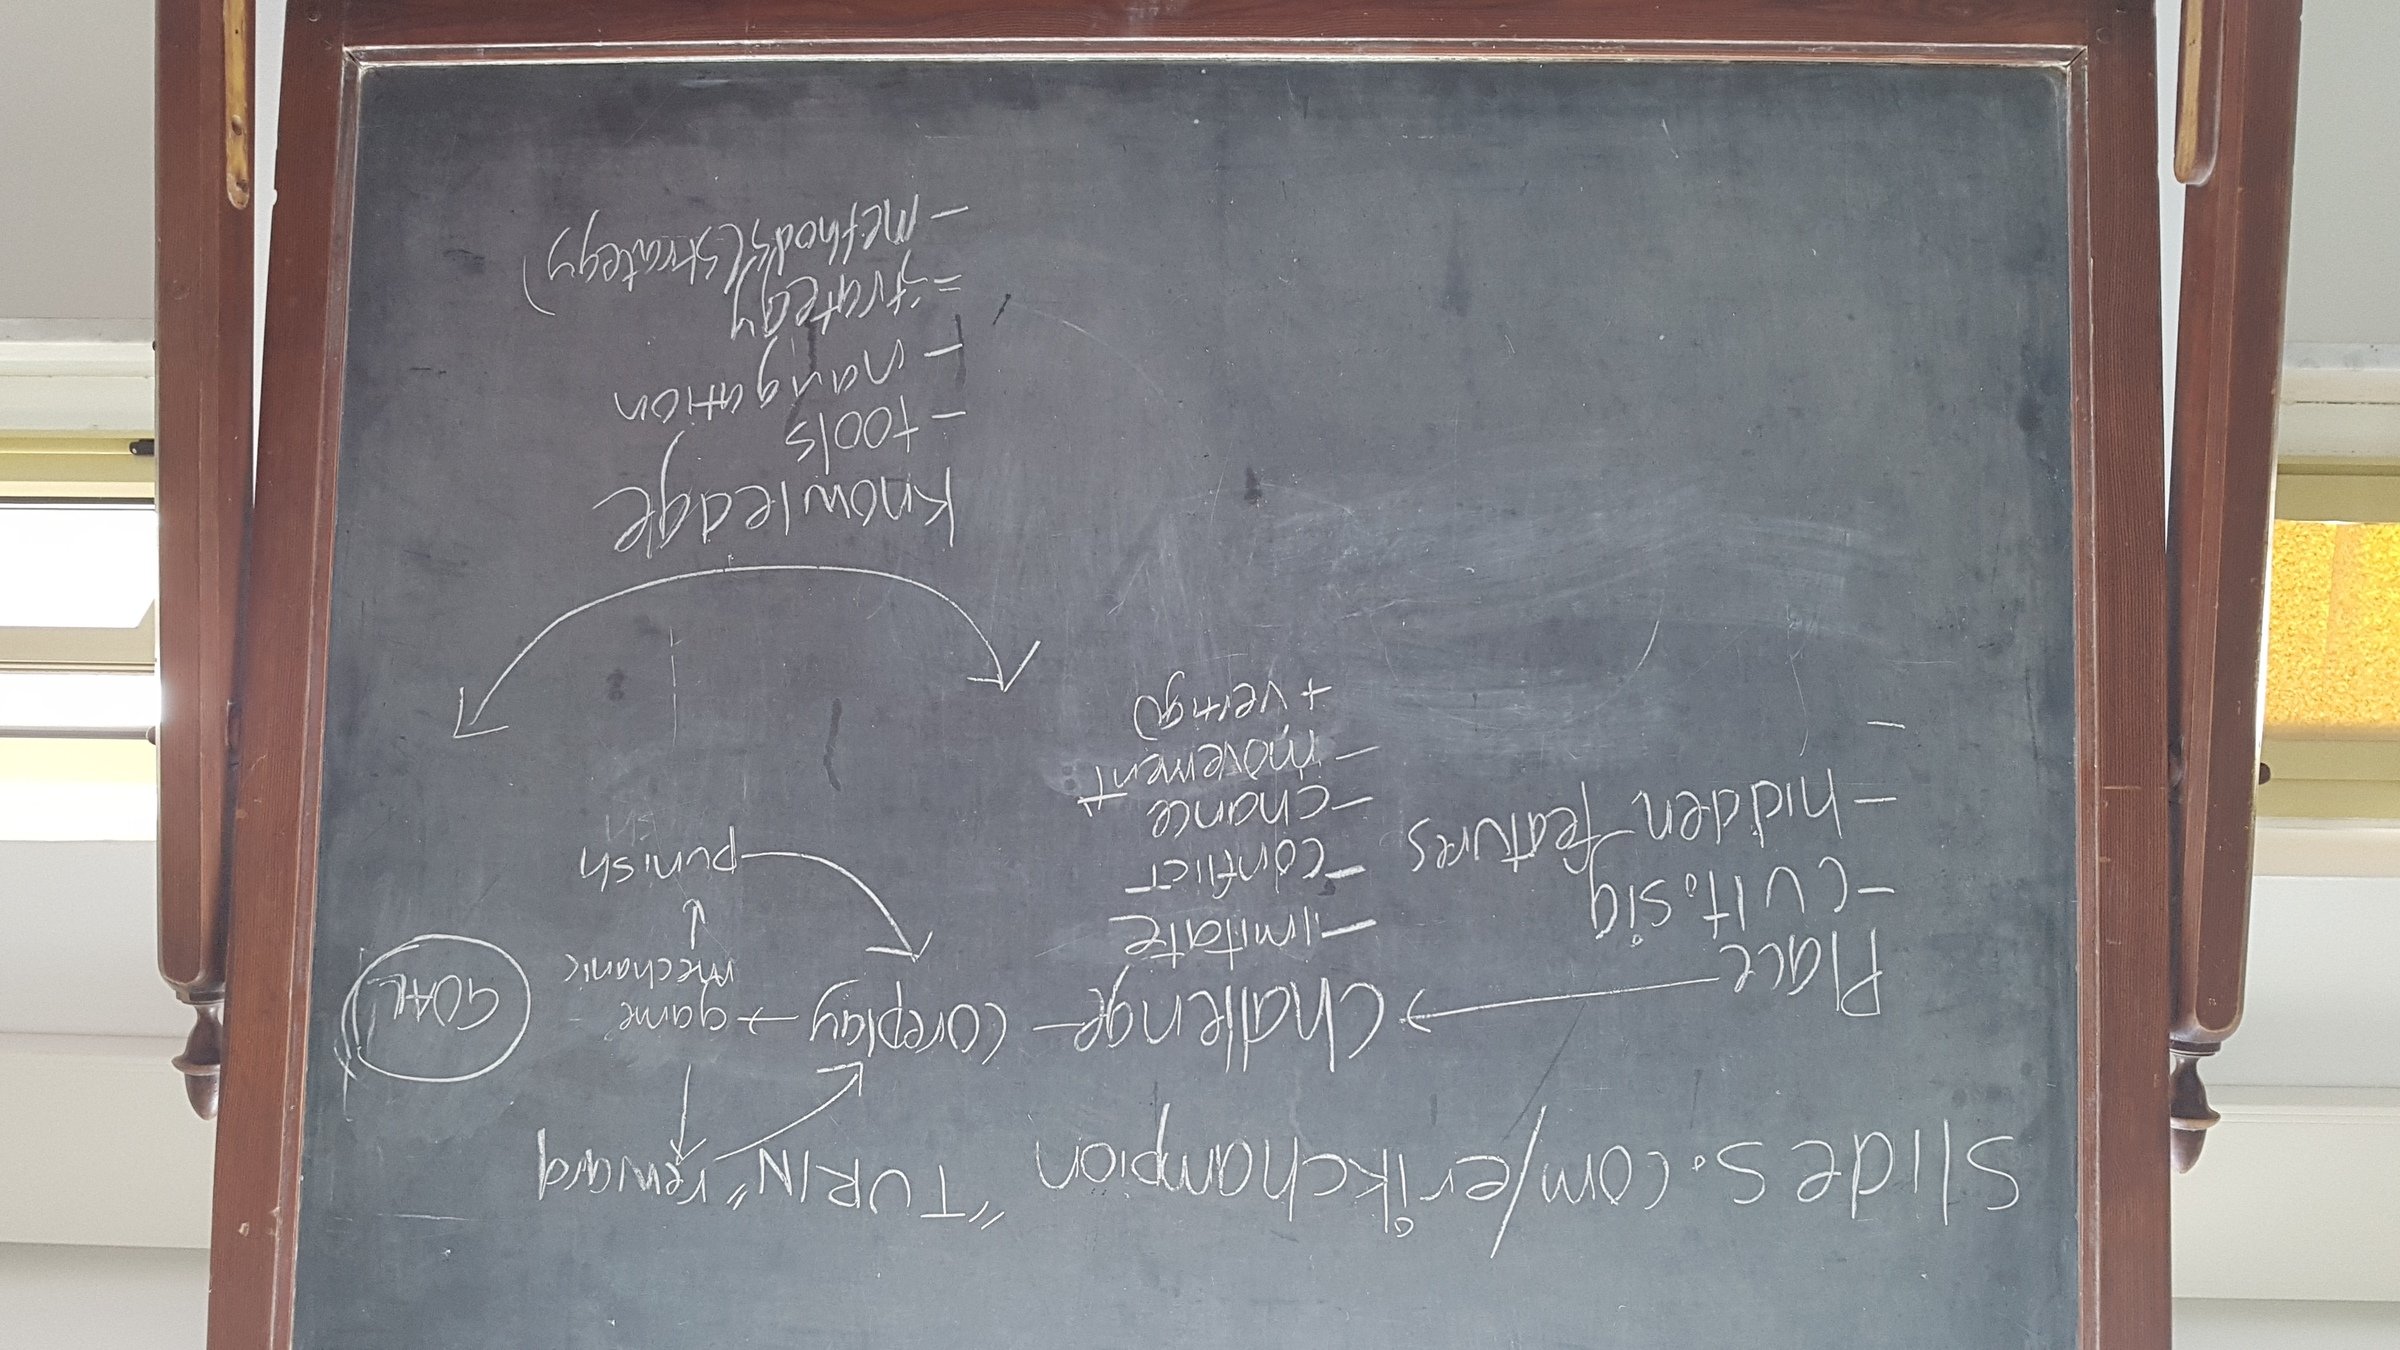 slides.com/erikchampion "TURIN" reward
Place → challenge - coreplay → game mechanic
GOAL
- cult. sig
- hidden features
-
- imitate
- conflict
- chance
- movement
+ vertigo
punish
knowledge
- tools
- navigation
= strategy
- methods (strategy)